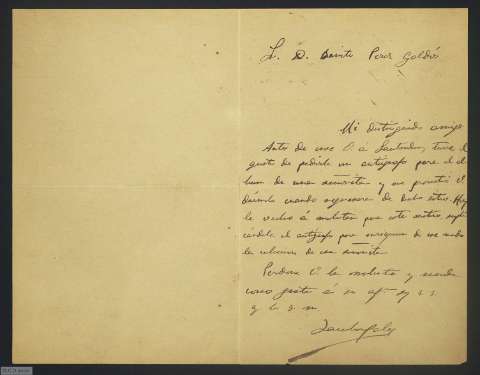 Sr. D. Benito Perez Galdós
Mi distinguido amigo
Antes de irse V. á Santander, tuve el
gusto de pedirle un autógrafo para el ál
bum de una señorita y me prometió V.
dármelo cuando regresara de dicho sitio. Hoy
le vuelvo á molestar por este motivo, supli
cándole el autógrafo para
la señorita
Perdone V. la molestia y mande
como guste á su afmo. y s. s.
q. b. s. m.